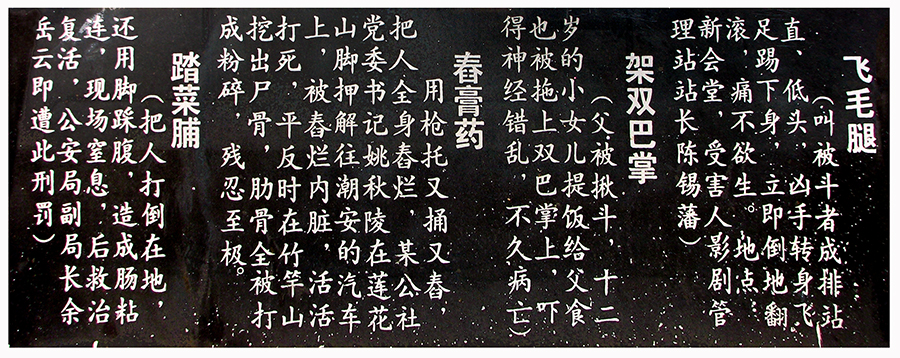 飞毛腿
（叫被斗者成排站
直、低头，凶手转身飞
足踢下身，立即倒地翻
滚，痛不欲生。地点
新会堂，受害人影剧管
理站站长陈锡藩）
架双巴掌
（父被揪斗，十二
岁的小女儿提饭给父食
也被拖上双巴掌上，吓
得神经错乱，不久病亡）
舂膏药
用枪托又捅又舂，
把人全身舂烂，某公社
党委书记姚秋陵在莲花
山脚押解往潮安的汽车
上，被舂烂内脏，活活
打死，平反时在竹竿山
挖出尸骨，肋骨全被打
成粉碎，残忍至极。
踏菜脯
（把人打倒在地，
还用脚踩腹，造成肠粘
连，现场窒息，后救治
复活，公安局副局长余
岳云即遭此刑罚）